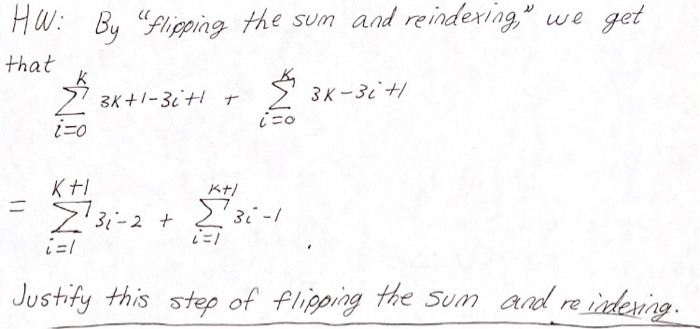 HW: By "flipping the sum and reindexing," we get
that
K
∑ 3K+1-3i+1 + ∑ 3K-3i+1
i=0 i=0
K+1 K+1
= ∑ 3i-2 + ∑ 3i-1
i=1 i=1
.
Justify this step of flipping the sum and reindexing.